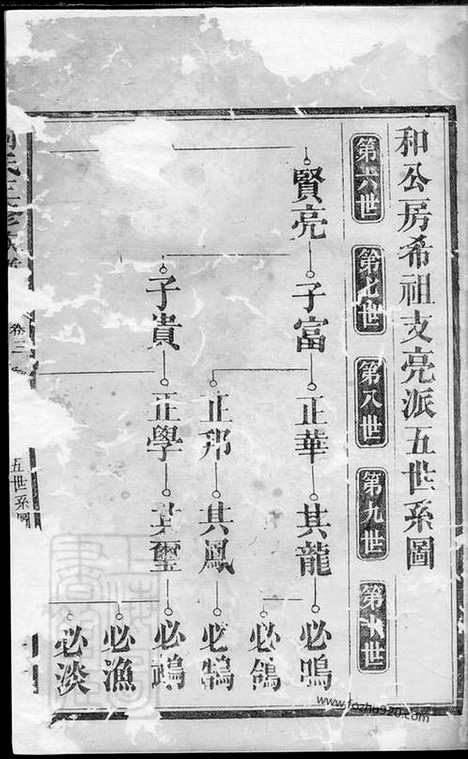 和公房希祖支亮派五世系圖
第六世
第七世
第八世
第九世
第十世
賢亮
子富
子貴
正華
正邦
正學
其龍
其鳳
其璽
必鳴
必鴿
必鵠
必漁
必淡
卷三
五世系圖
www.fozhu920.com